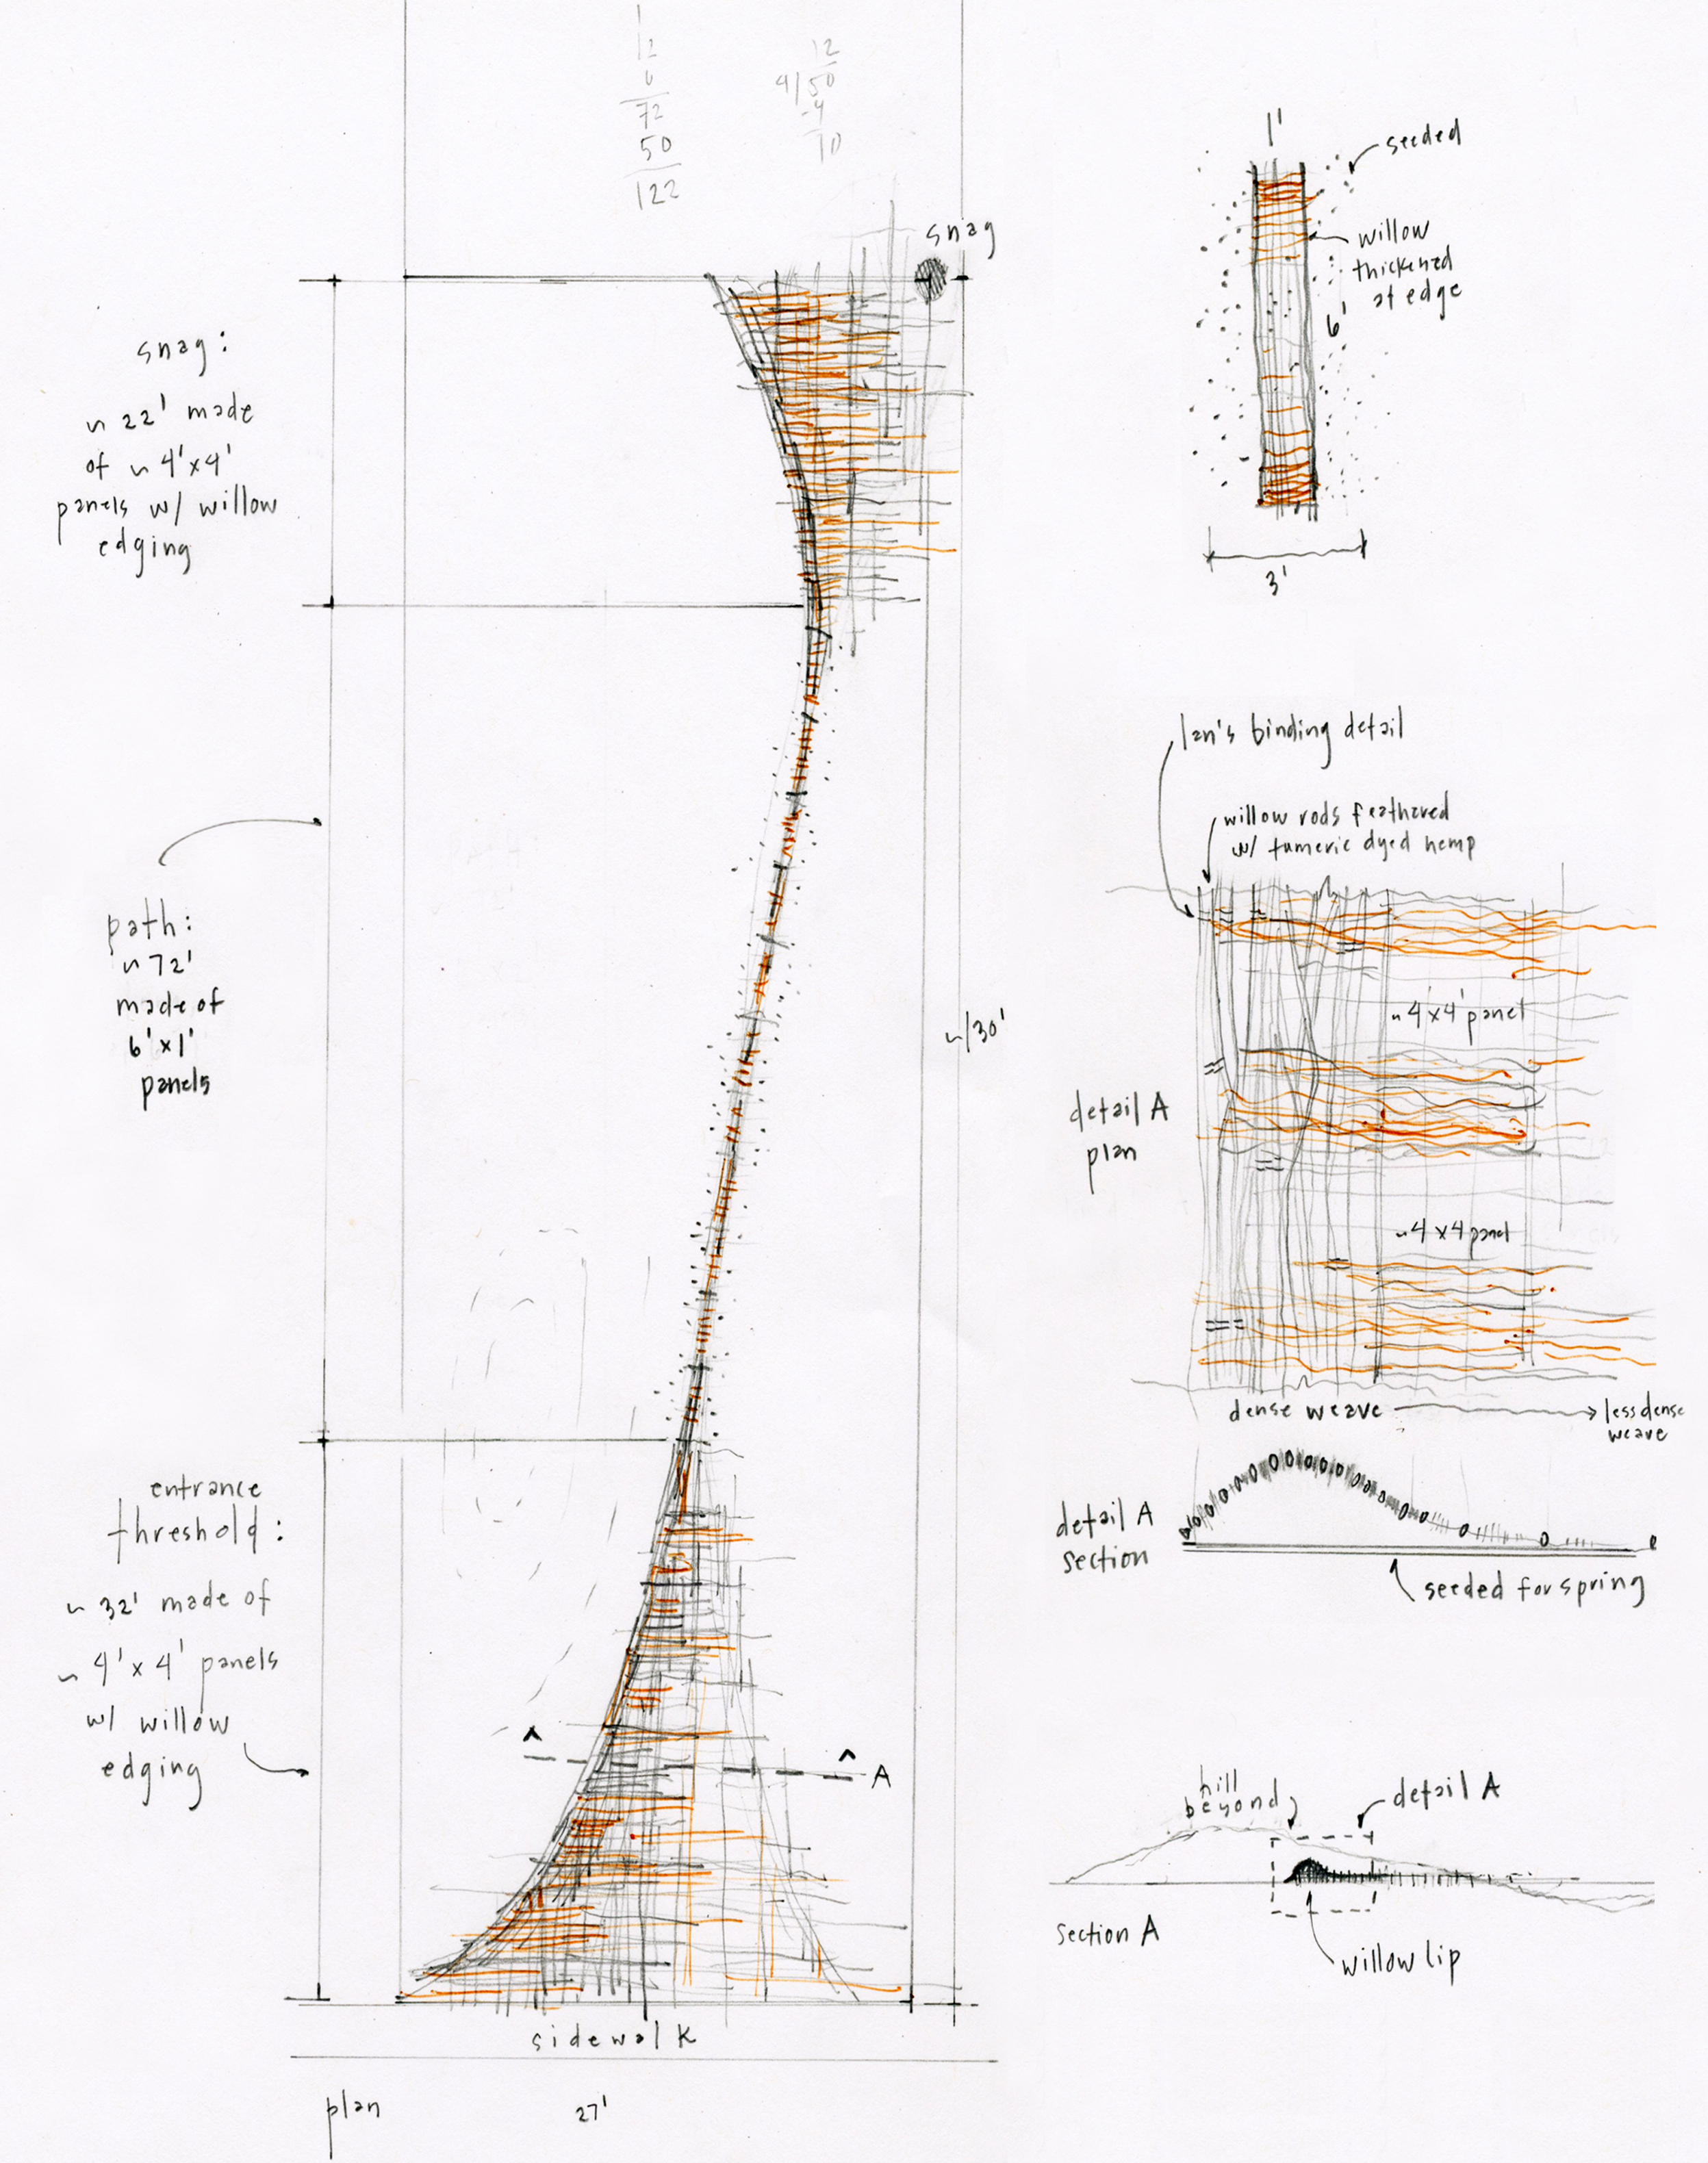 12
6
72
50
122
12
4/50
-4
10
snag
snag:
~ 22' made
of ~ 4'x4'
panels w/ willow
edging
path:
~ 72'
made of
6'x1'
panels
entrance
threshold:
~ 32' made of
~ 4'x4' panels
w/ willow
edging
~130'
A
sidewalk
plan
27'
1'
seeded
willow
thickened
at edge
6'
3'
Ian's binding detail
willow rods feathered
w/ tumeric dyed hemp
~4'x4' panel
detail A
plan
~4x4 panel
dense weave
less dense
weave
detail A
section
seeded for spring
hill
beyond
detail A
section A
willow lip